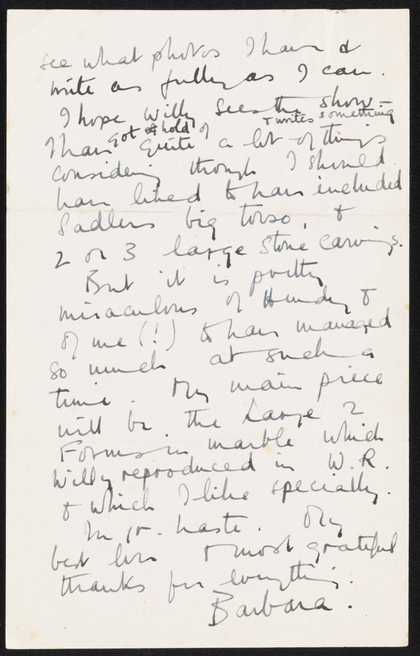 see what photos I have &
write as fully as I can.
I hope Willy sees the show –
& writes something
I have got hold of quite a lot of things
considering though I should
have liked to have included
Sadlers big torso, &
2 or 3 large stone carvings.
But it is pretty
miraculous of &
of me (!) to have managed
so much at such a
time. My main piece
will be the Large 2
Forms in marble which
Willy reproduced in W.R.
& which I like specially.
In gr. haste. My
best love & most grateful
thanks for everything.
Barbara.